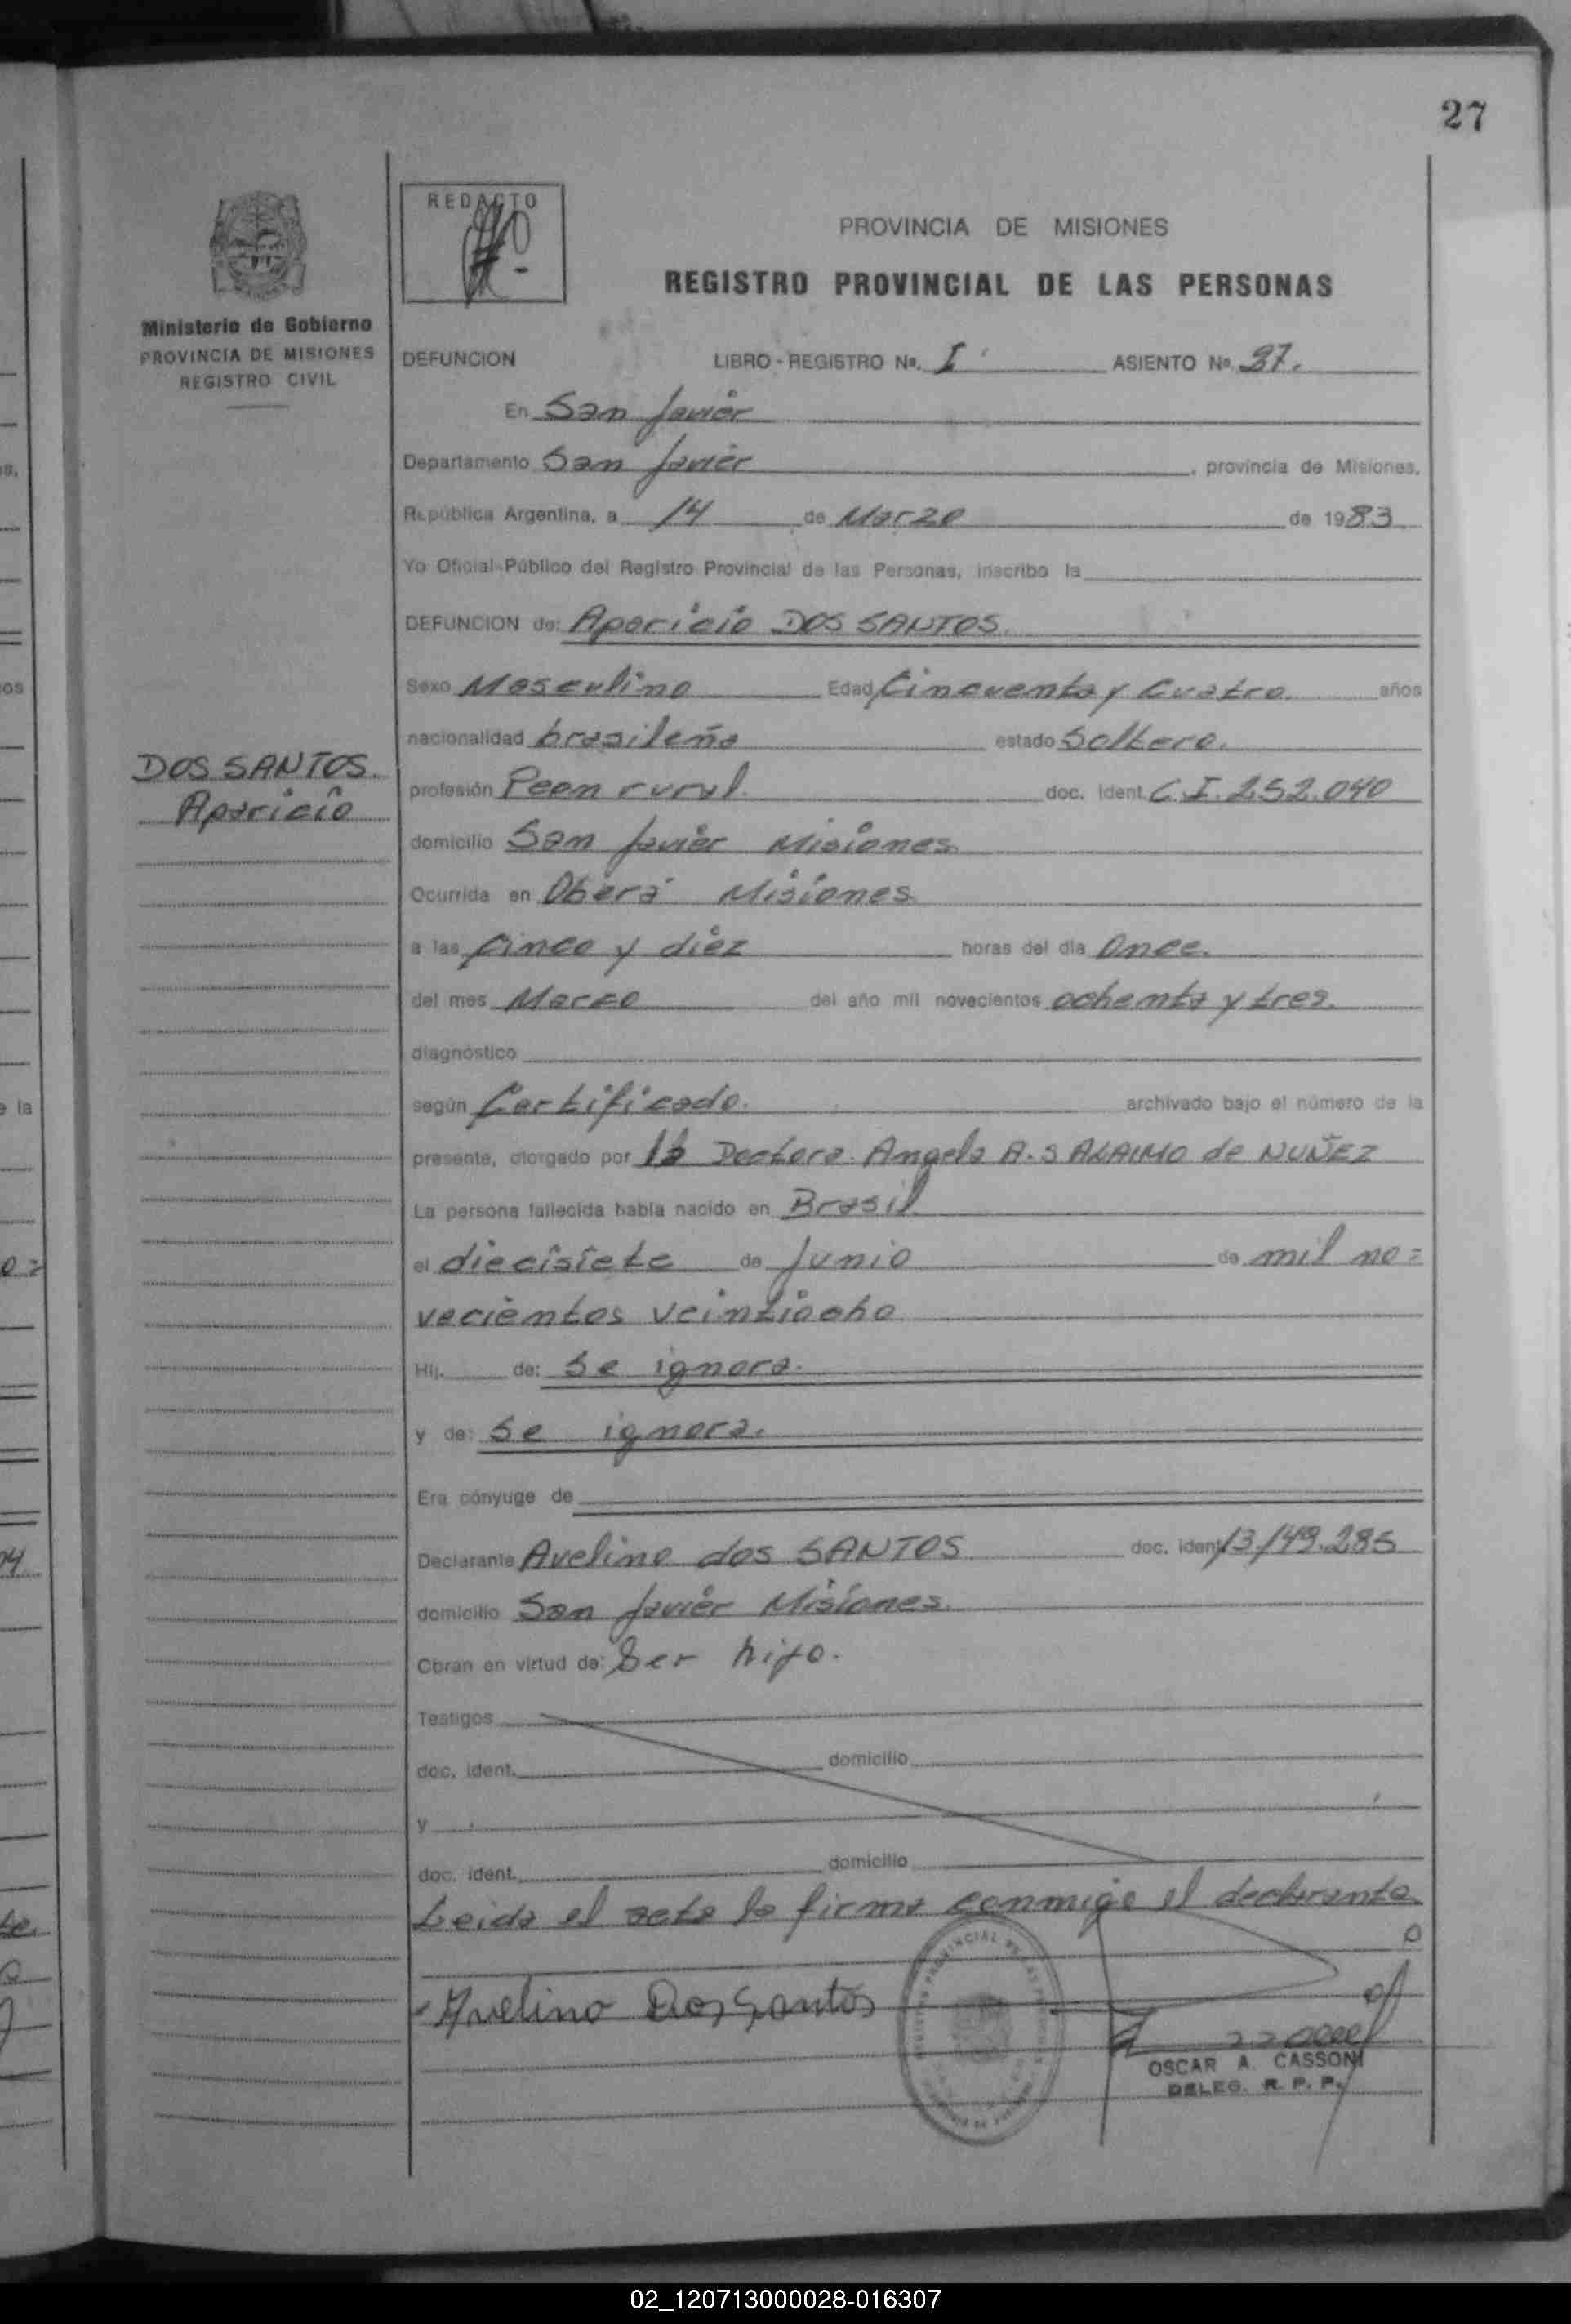 27
REDACTO
PROVINCIA DE MISIONES
REGISTRO PROVINCIAL DE LAS PERSONAS
Ministerio de Gobierno
PROVINCIA DE MISIONES
REGISTRO CIVIL
DEFUNCION LIBRO - REGISTRO No. I ASIENTO No. 27.
En San Javier
Departamento San Javier, provincia de Misiones,
República Argentina, a 14 de Marzo de 1983
Yo Oficial Público del Registro Provincial de las Personas, inscribo la
DEFUNCION de: Aparicio DOS SANTOS.
Sexo Masculino Edad Cincuenta y Cuatro años
nacionalidad brasileña estado Soltero.
DOS SANTOS.
Aparicio
profesión Peon rural. doc. ident. C.I. 252.040
domicilio San Javier Misiones.
Ocurrida en Oberá Misiones.
a las Cinco y diez horas del día Once.
del mes Marzo del año mil novecientos ochenta y tres.
diagnóstico
según Certificado. archivado bajo el número de la
presente, otorgado por la Doctora. Angela A. SALAIMO de NUÑEZ
La persona fallecida había nacido en Brasil
el diecisiete de Junio de mil no=
vecientos veintiocho
Hij. de: Se ignora.
y de: Se ignora.
Era cónyuge de
Declarante Avelino dos SANTOS doc. ident. 13.149.285
domicilio San Javier Misiones.
Obran en virtud de: Ser hijo.
Testigos
doc. ident. domicilio
y
doc. ident. domicilio
Leida el acta la firma conmigo el declarante
Avelino Dos Santos
OSCAR A. CASSONI
DELEG. R. P. P.
02_120713000028-016307